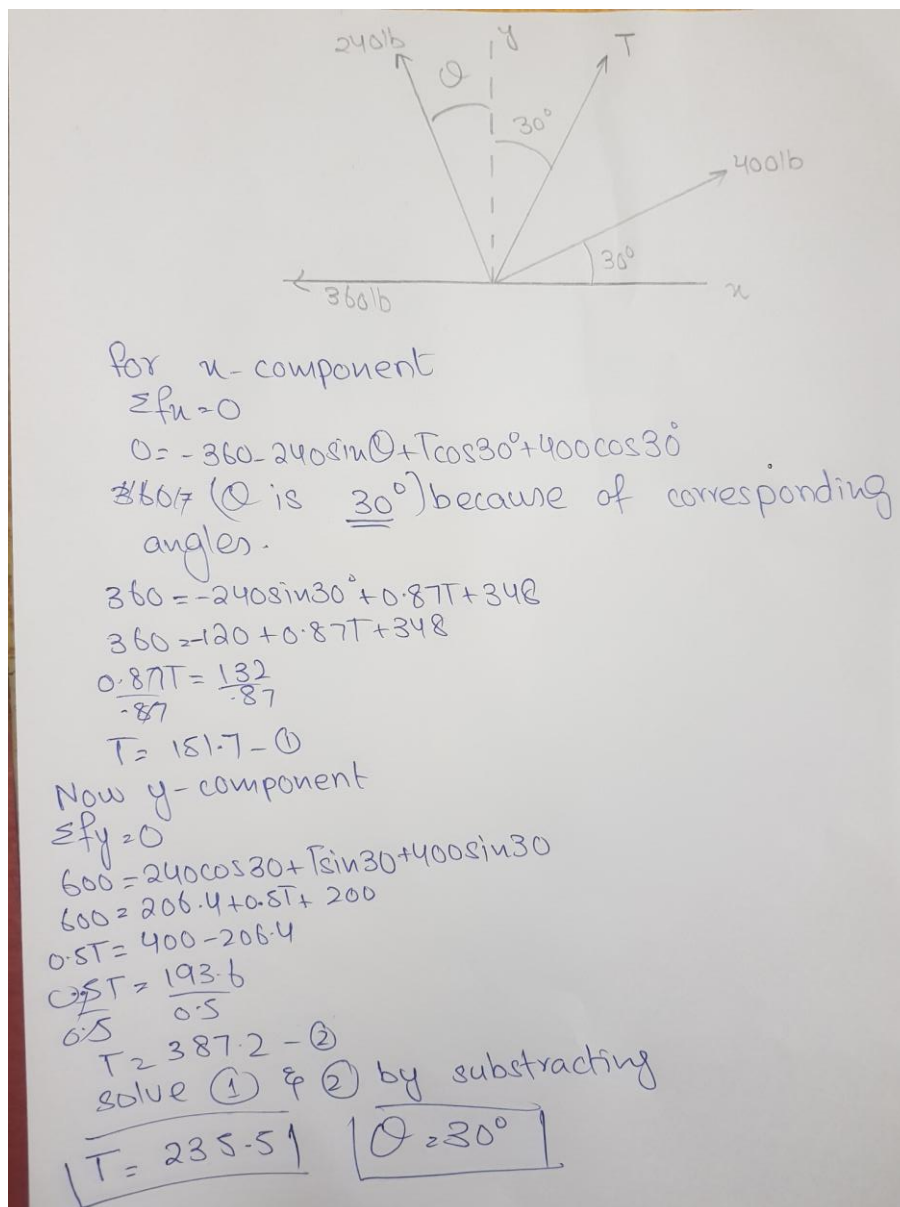 240lb
y
T
θ
30°
400lb
30°
360lb
x
for x-component
Σfx=0
0=-360-240sinθ+Tcos30°+400cos30°
(θ is 30°) because of corresponding
angles.
360=-240sin30°+0.87T+348
360=-120+0.87T+348
0.87T=132
.87 .87
T=151.7-①
Now y-component
Σfy=0
600=240cos30+Tsin30+400sin30
600=206.4+0.5T+200
0.5T=400-206.4
0.5T=193.6
0.5 0.5
T=387.2-②
solve ① & ② by substracting
T=235.5 θ=30°